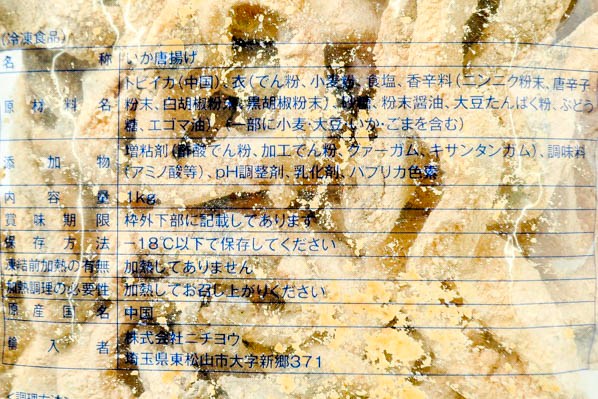 (冷凍食品)
名 称 いか唐揚げ
原材料名 トビイカ(中国)、衣(でん粉、小麦粉、食塩、香辛料(ニンニク粉末、唐辛子
粉末、白胡椒粉末、黒胡椒粉末)、砂糖、粉末醤油、大豆たんぱく粉、ぶどう
糖、エゴマ油)(一部に小麦・大豆・いか・ごまを含む)
添加物 増粘剤(酢酸でん粉、加工でん粉、グァーガム、キサンタンガム)、調味料
(アミノ酸等)、pH調整剤、乳化剤、パプリカ色素
内容量 1kg
賞味期限 枠外下部に記載してあります
保存方法 -18℃以下で保存してください
凍結前加熱の有無 加熱してありません
加熱調理の必要性 加熱してお召し上がりください
原産国名 中国
輸入者 株式会社ニチヨウ
埼玉県東松山市大字新郷371